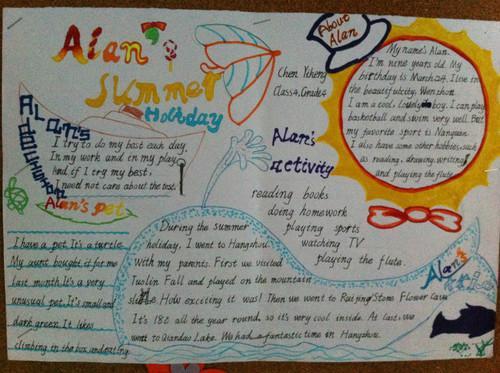 Alan's
Summer
Holiday
About
Alan
Chen Yiheng
Class4, Grade4
My name's Alan.
I'm nine years old. My
birthday is March 24. I live in
the beautiful city, Wenzhou.
I am a cool boy. I can play
basketball and swim very well. But
my favorite sport is
I also have some other hobbies, such
as reading, drawing, writing
and playing the flute.
Alan's
I try to do my best each day,
In my work and in my play,
And if I try my best,
I need not care about the rest.
Alan's
activity
reading books
doing homework
playing sports
watching TV
playing the flute.
Alan's pet
I have a pet. It's a turtle.
My aunt bought it for me
last month. It's a very
unusual pet. It's small and
dark green. It likes
climbing in the box and eating
Alan's
During the summer
holiday, I went to Hangzhou
with my parents. First we visited
Fall and played on the mountain
slide. How exciting it was! Then we went to Stone Flower Cave
It's 18 all the year round, so it's very cool inside. At last, we
went to Qiandao Lake. We had a fantastic time in Hangzhou.